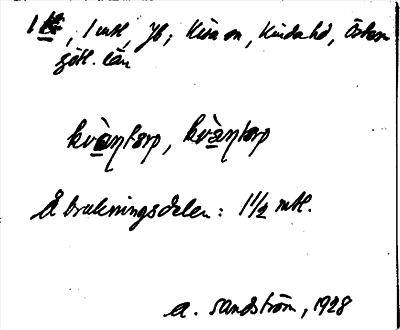 1 , 1 mtl, Jb; Kisa sn, Kinda hd, Öster
götl. län
kvàŋtorp, kvàŋtorp
Åbrukningsdelen: 1 1/2 mtl.
A. Sandström, 1928